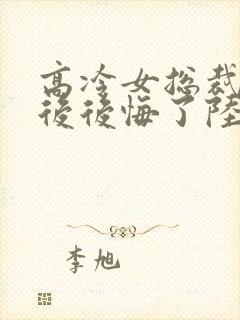 高冷女总裁
後後悔了陸
李旭